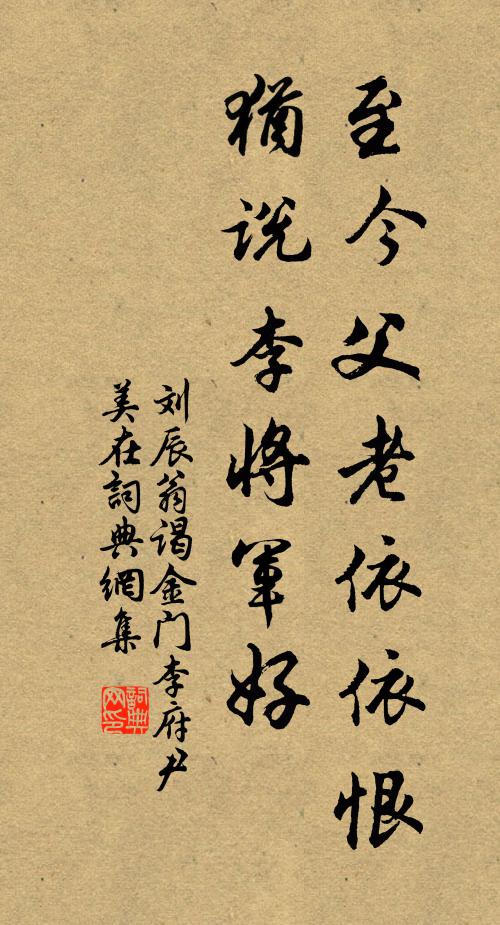 至今父老依依恨
猶说李將軍好
刘辰翁谒金门李府尹
美在詞典網集
詞典
网印